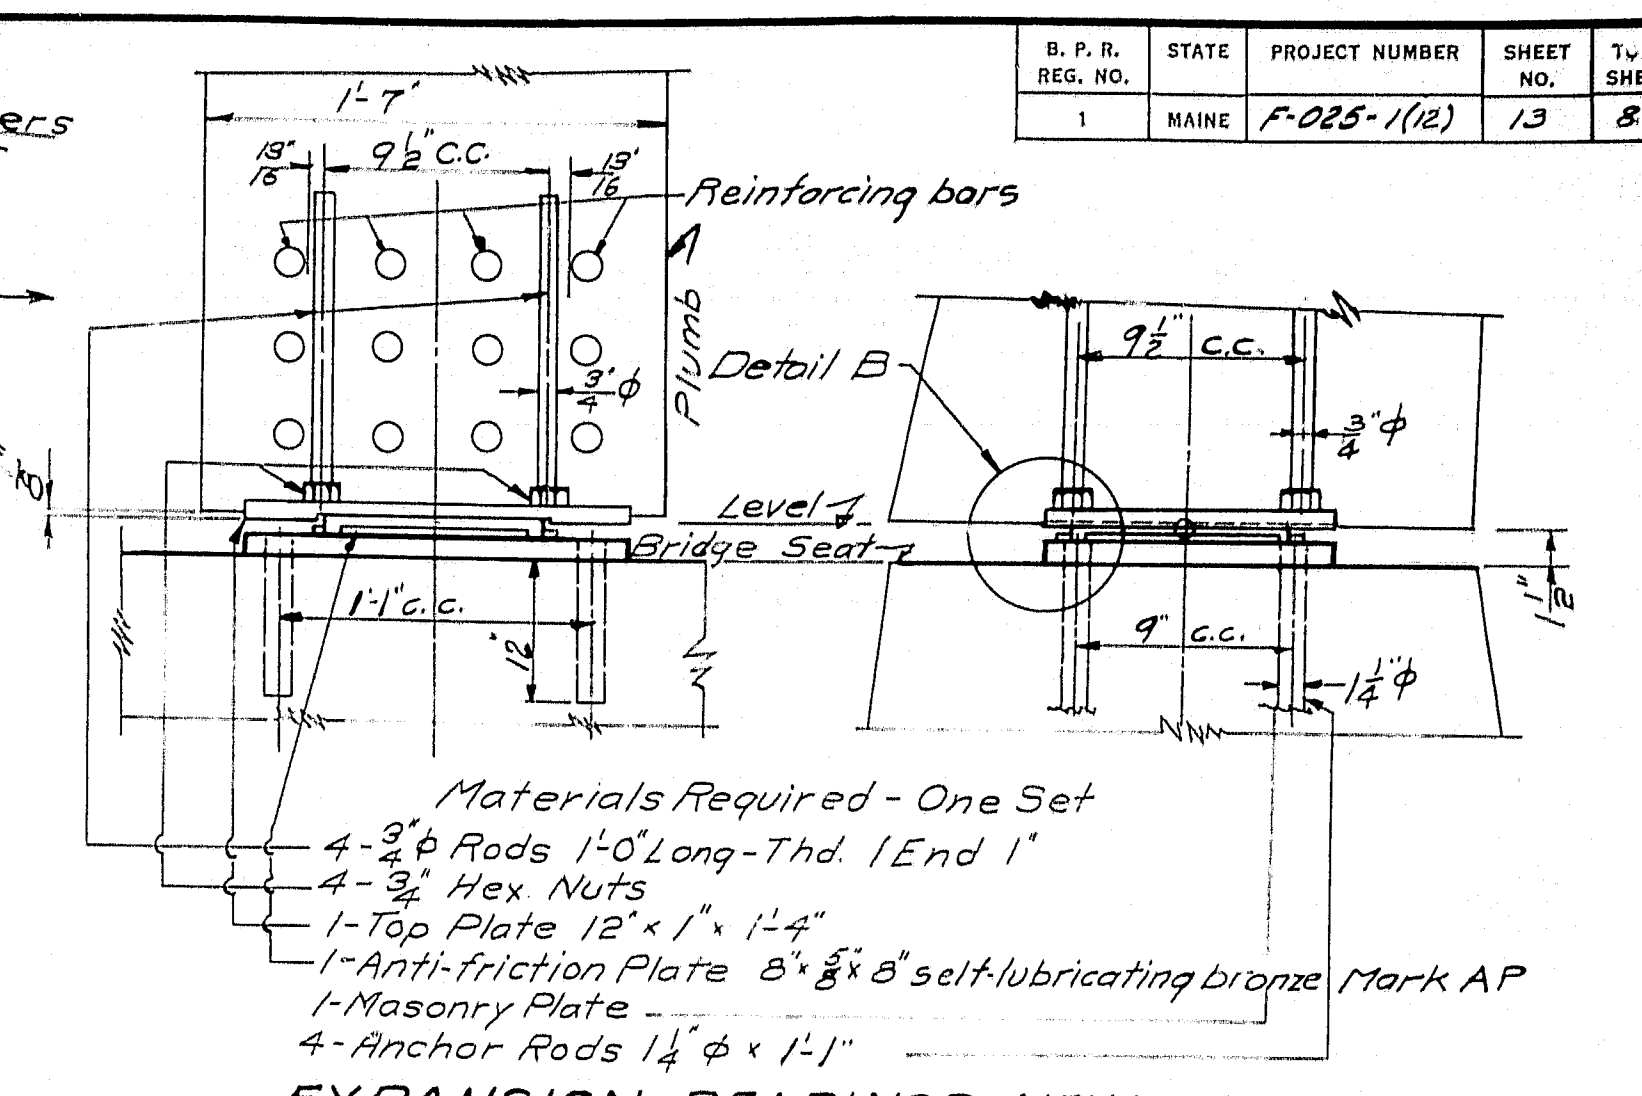 B. P. R. REG. NO. STATE PROJECT NUMBER SHEET NO.
1 MAINE F-025-1(12) 13 8
ers
1'-7"
13/16" 9 1/2" C.C. 13/16"
Reinforcing bars
Plumb
3/4" ϕ
Detail B
9 1/2" C.C.
3/4" ϕ
Level
Bridge Seat
1 1/2"
1'-1" C.C.
12"
9" C.C.
1 1/4" ϕ
Materials Required - One Set
4-3/4" ϕ Rods 1'-0" Long-Thd. 1 End 1"
4-3/4" Hex. Nuts
1-Top Plate 12" x 1" x 1'-4"
1-Anti-friction Plate 8" x 5/8" x 8" self-lubricating bronze Mark AP
1-Masonry Plate
4-Anchor Rods 1 1/4" ϕ x 1'-1"
EXPANSION BEARINGS